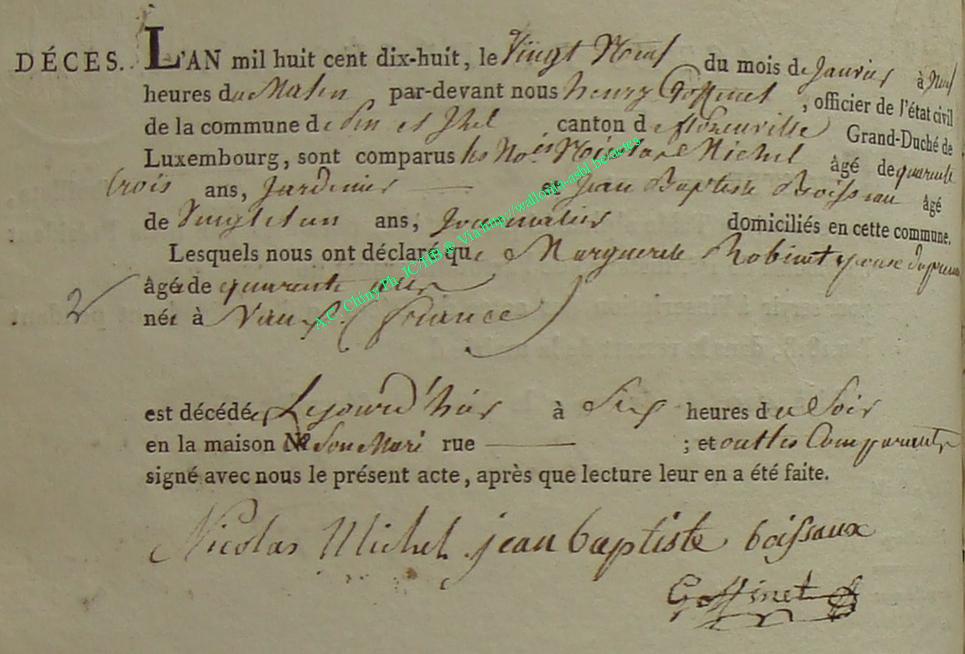 DÉCES. L'AN mil huit cent dix-huit, le Vingt Neuf du mois de Janvier à Neuf
heures du Matin par-devant nous henry Goffinet, officier de l'état civil
de la commune de Pin et Izel canton de florenville Grand-Duché de
Luxembourg, sont comparus les Nicolas Michel âgé de quarente
trois ans, Jardinier et Jean Baptiste Boissau âgé
de Vingt et un ans, Journalier domiciliés en cette commune.
Lesquels nous ont déclaré que Marguerite Robinet epouse du premier
âgée de quarente ans
née à Vaux (france)
2
est décédée Lejourd'hier à Six heures du Soir
en la maison de Son Mari rue ; et ont les Comparants
signé avec nous le présent acte, après que lecture leur en a été faite.
Nicolas Michel jean baptiste boissaux
Goffinet
A.C. Chiny Ph. JCAHB & Via http://wallonia-asbl.be/actes